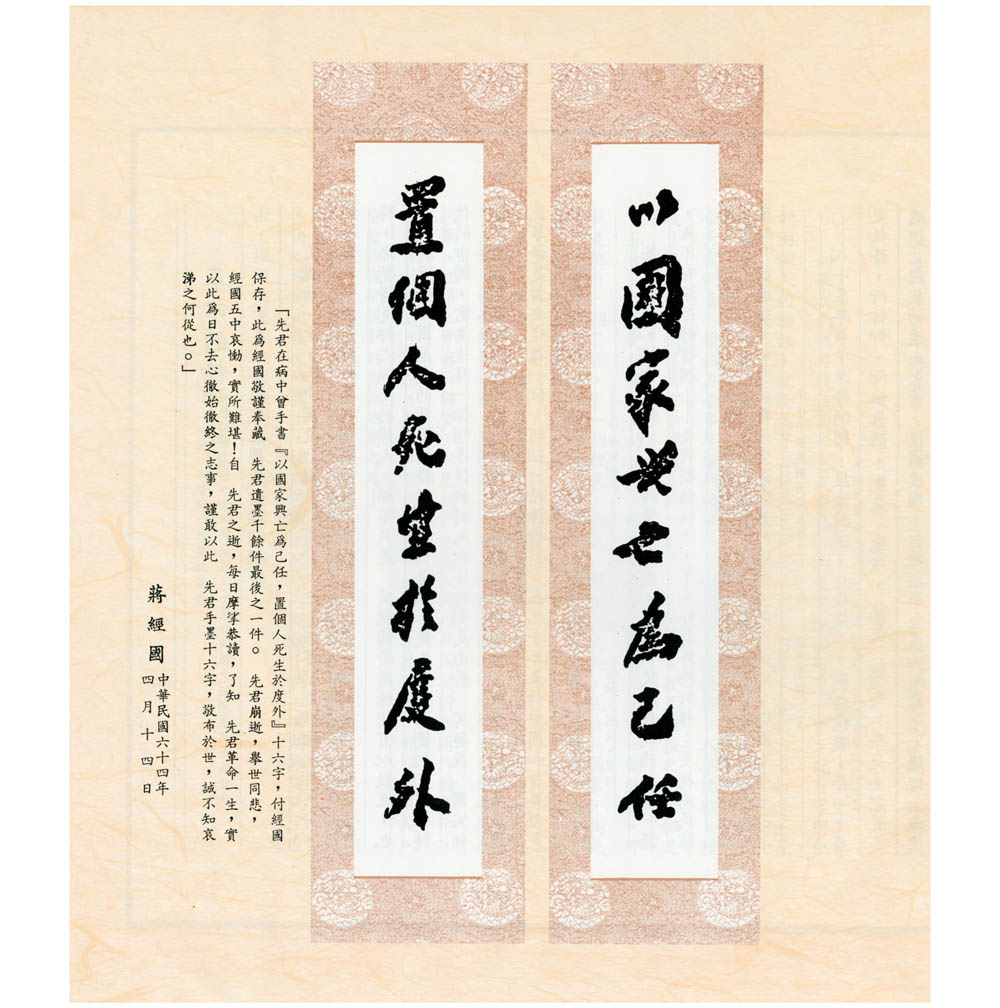 以國家興亡為己任
置個人死生於度外
「先君在病中曾手書『以國家興亡爲己任，置個人死生於度外』十六字，付經國
保存，此爲經國敬謹奉藏　先君遺墨千餘件最後之一件。　先君崩逝，舉世同悲，
經國五中哀慟，實所難堪！自　先君之逝，每日摩挲恭讀，了知　先君革命一生，實
以此爲日不去心徹始徹終之志事，謹敢以此　先君手墨十六字，敬布於世，誠不知哀
涕之何從也。」
蔣經國
中華民國六十四年
四月十四日